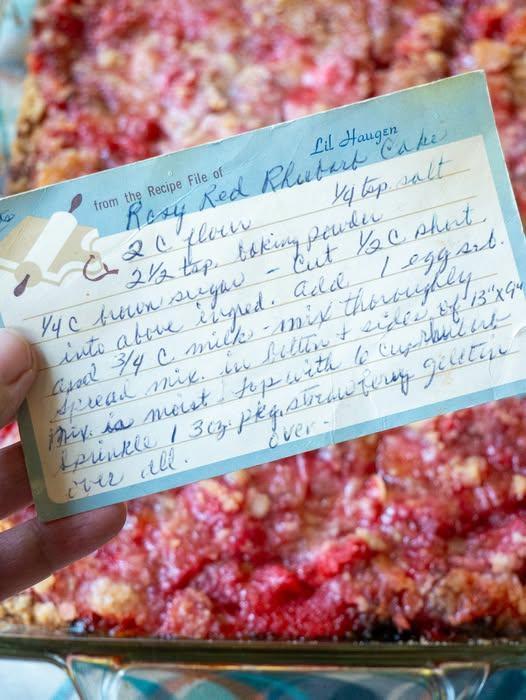 from the Recipe File of Lil Haugen
Rosy Red Rhubarb Cake
2 C flour 1/4 tsp salt
2 1/2 tsp. baking powder
1/4 C brown sugar - Cut 1/2 C short.
into above ingred. Add 1 egg
and 3/4 C milk - mix thoroughly
Spread mix. in bottom + sides of 13"x9"
Mix is moist. top with 6 cup rhubarb
Sprinkle 1 3 oz. pkg. strawberry gelatin
over all. over-